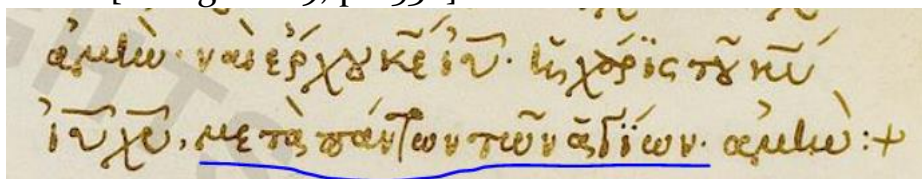 ἀμήν· ναὶ ἔρχου κ̅ε̅ ἰ̅υ̅· ἡ χάρϊς τοῦ κ̅υ̅
ἰ̅υ̅ χ̅υ̅, μετὰ πάντων τῶν ἁγΐων· ἀμήν:+